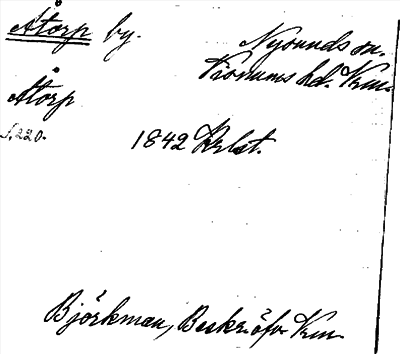 Åtorp by.
Nysunds sn.
Visnums hd. Vrm.
Åtorp
S. 220.
1842 Krlst.
Björkman, Beskr. öfv. Vrm.